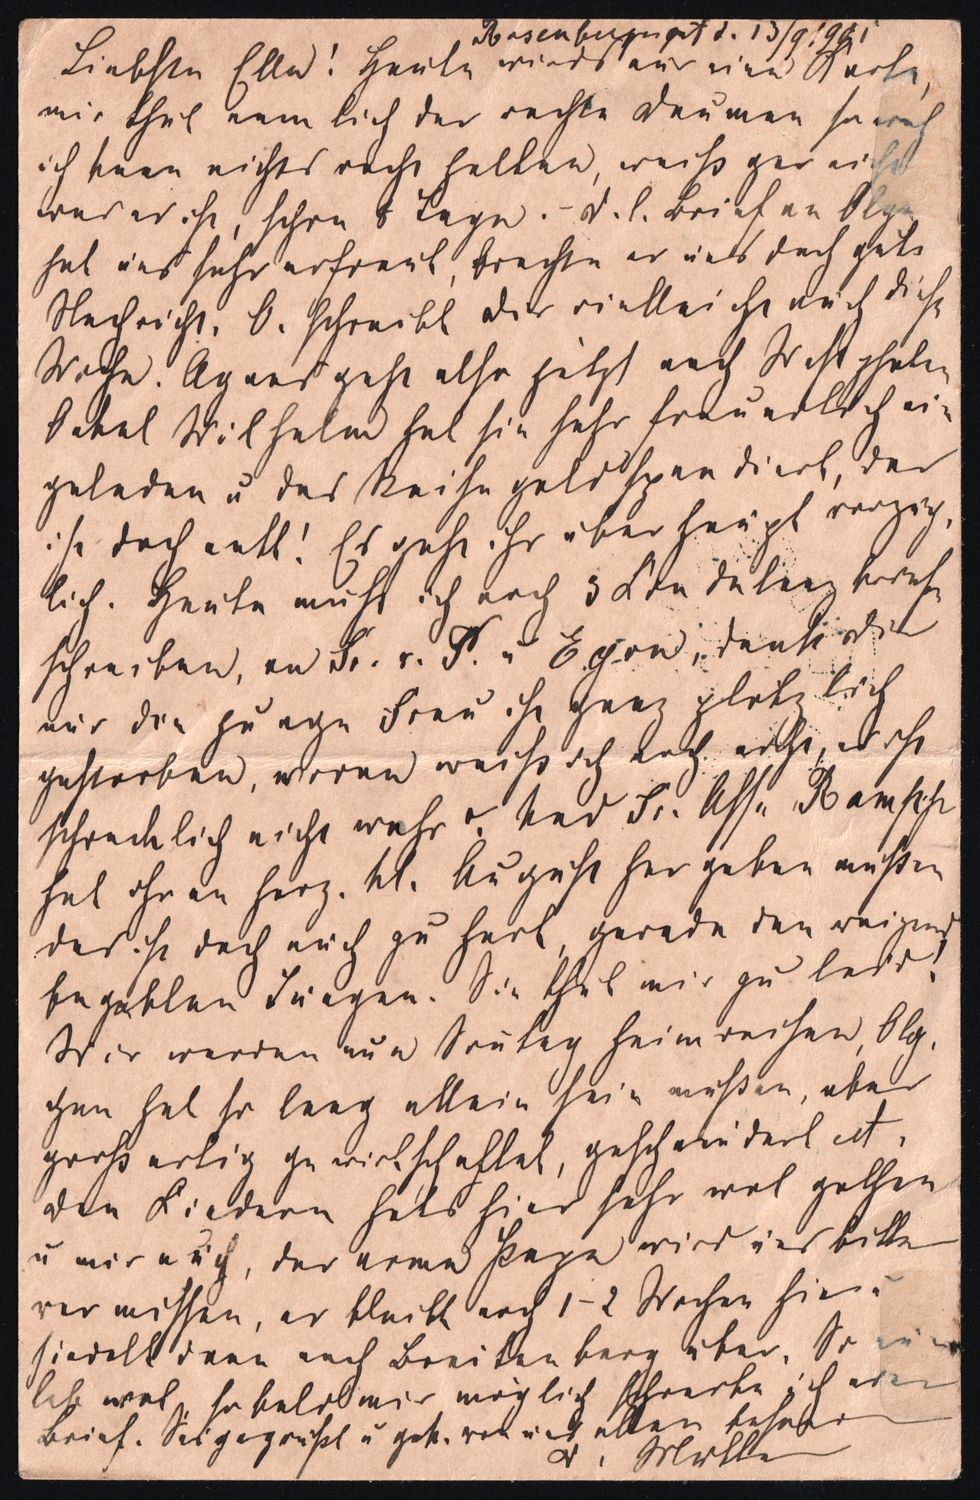 Rosenbergsgut d. 13/9 1901
Liebste Ella! Heute wirds nur eine Karte,
mir thut nemlich der rechte Daumen so weh
ich kann nichts recht halten, weiß gar nicht
was es ist, schon 8 Tage. – D. l. Brief an Olga
hat uns sehr erfreut, brachte er uns doch gute
Nachricht. O. schreibt Dir vielleicht auch diese
Woche. Agnes geht also jetzt nach Westphalen
Onkel Wilhelm hat sie sehr freundlich ein
geladen u das Reisegeld spendiert, das
ist doch nett! Es geht ihr überhaupt vorzüg-
lich. Heute muß ich noch 3 Kondulenzbriefe
schreiben, an Fr. v. P. u Egon, denke Dir
nur die junge Frau ist ganz plötzlich
gestorben, woran weiß ich noch nicht, es ist
schrecklich nicht wahr? Und Fr. Ass.
hat ihren herz. kl. August hergeben müßen
das ist doch auch zu hart, gerade den reizend
begabten Jungen. Sie thut mir zu leid!
Wir werden nun Sontag heimreisen, Olg.
chen hat so lang allein sein müßen, aber
großartig gewirtschaftet, gescheuert ect.
Den Kindern hats hier sehr wol gethan
u mir auch, der arme Papa wird uns bitter
vermissen, er bleibt noch 1–2 Wochen hier u
siedelt dann nach Breitenberg über. So nun
leb wol, sobald mir möglich schreibe ich einen
Brief. Sei gegrüßt u gek. von uns allen besonders
D. Mutter